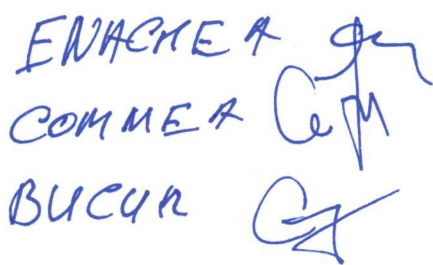 ENACHE A
COMME A
BUCUR